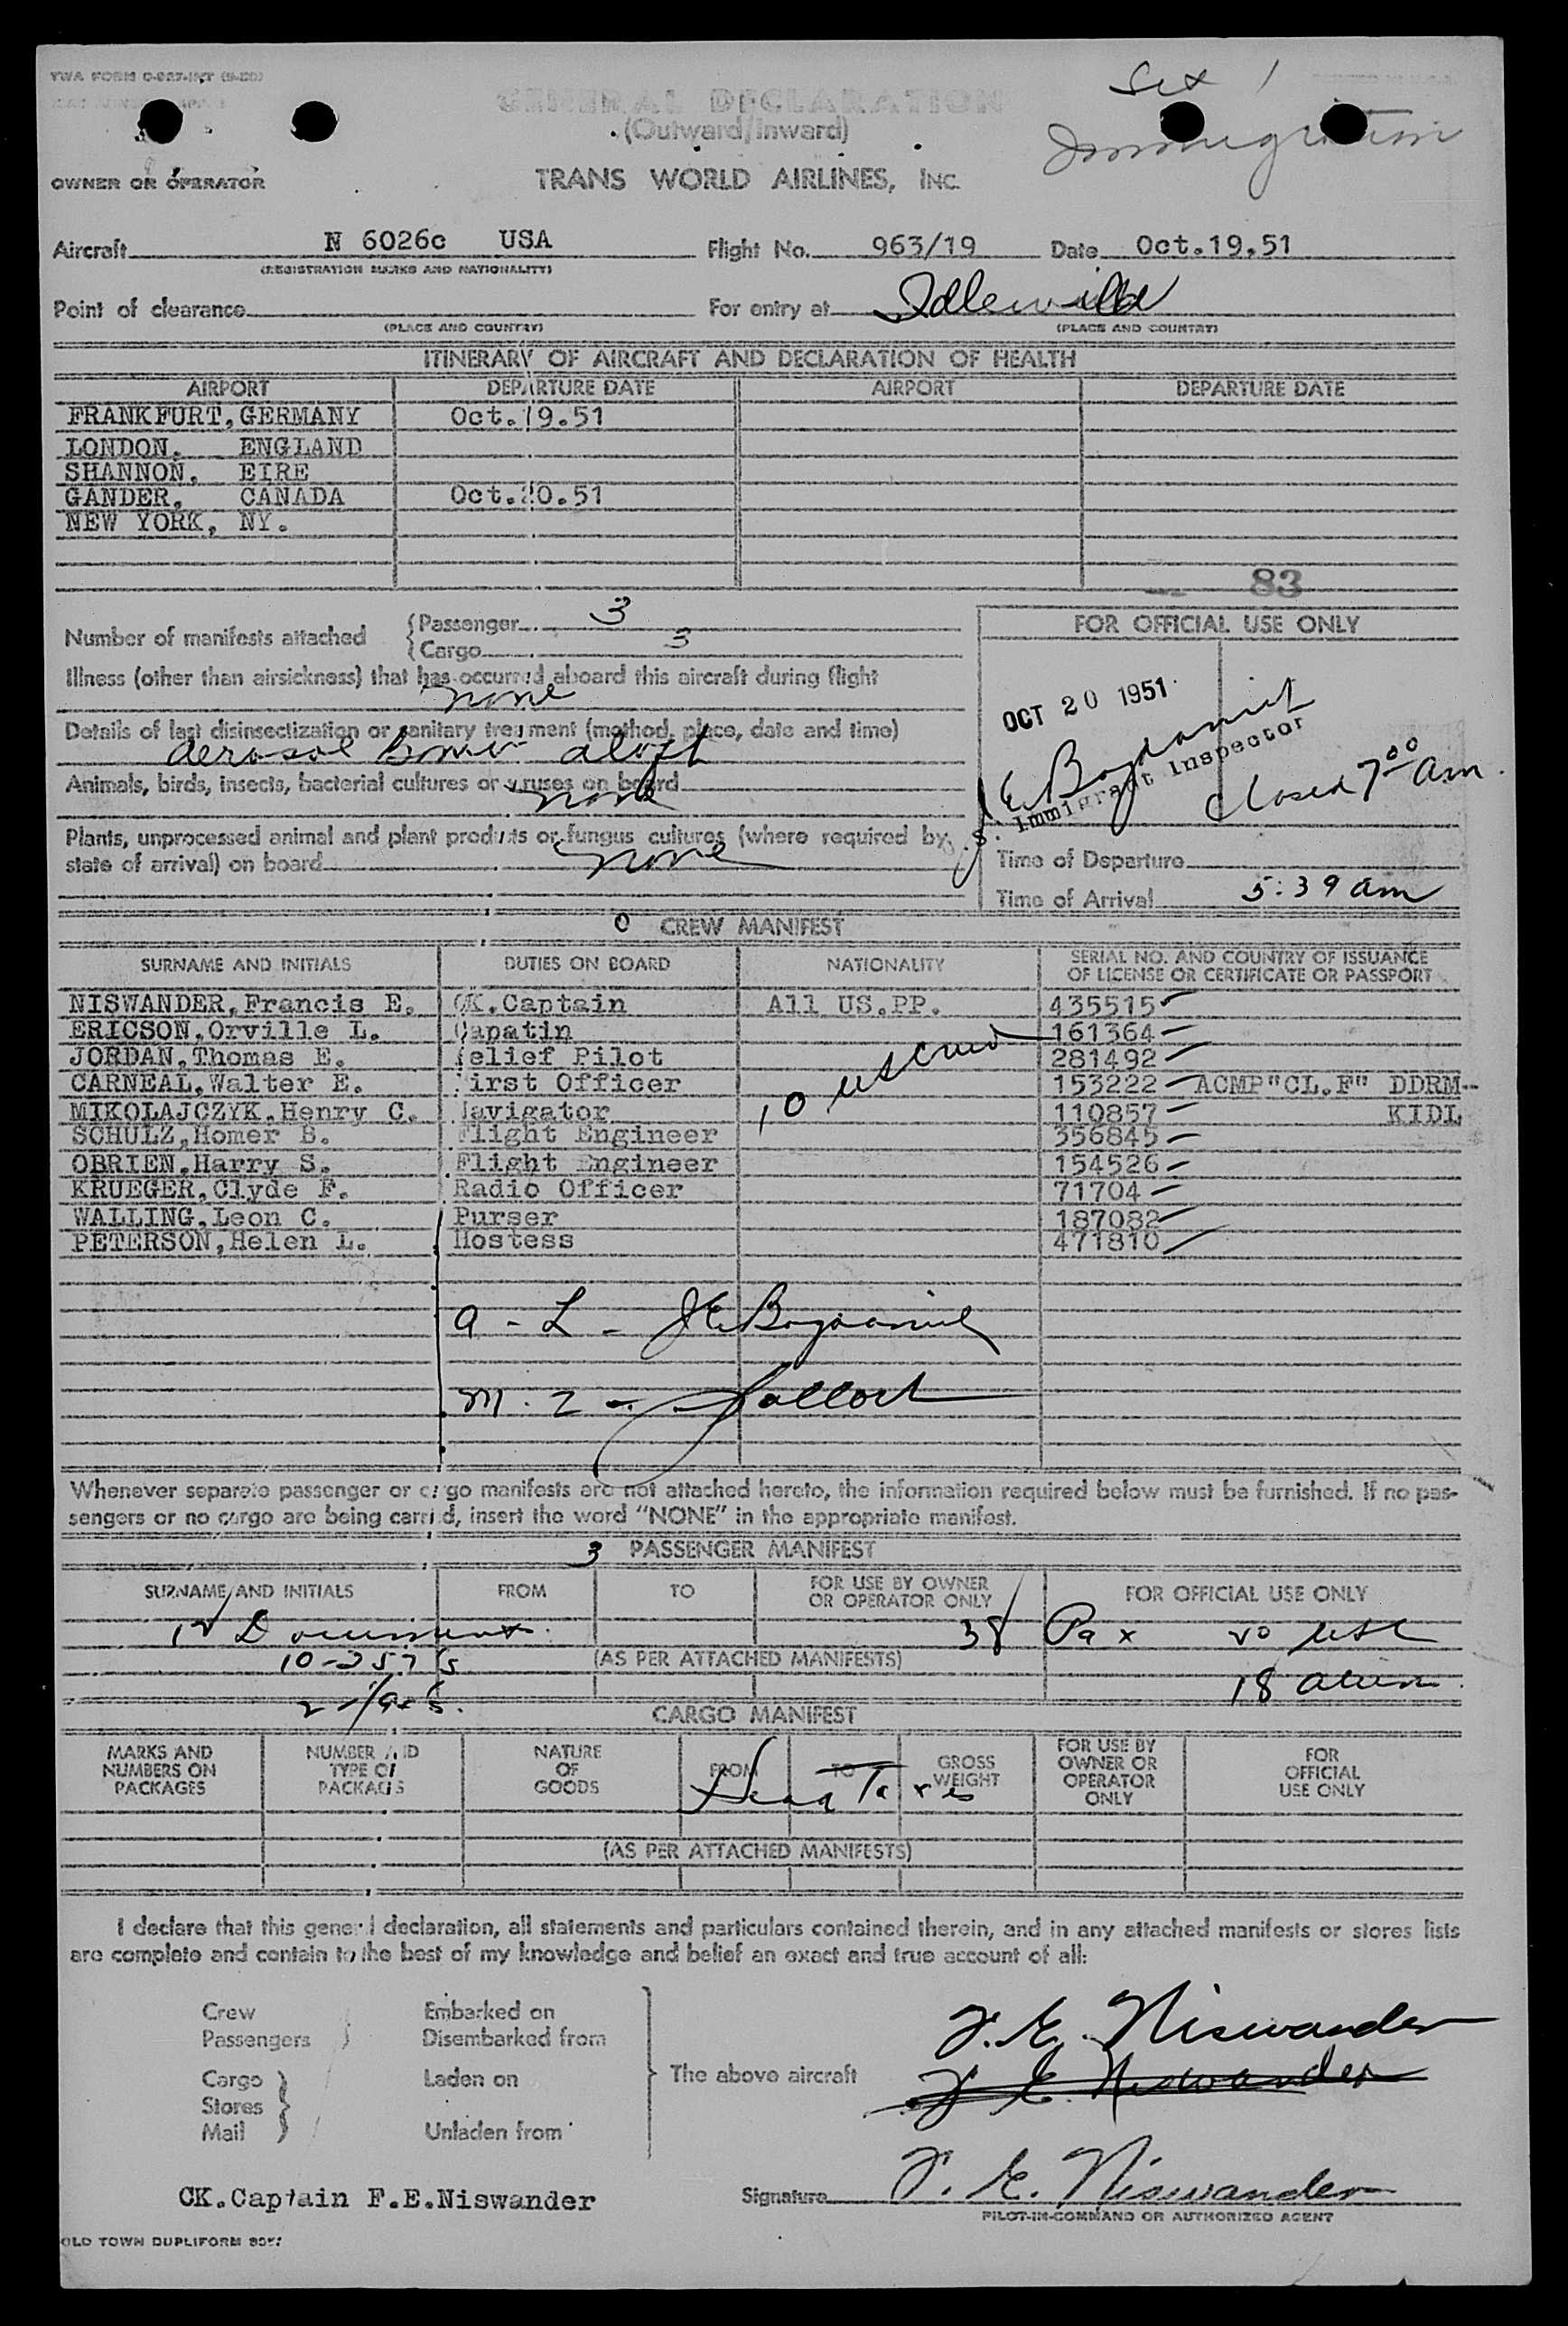 TWA FORM
Set 1
GENERAL DECLARATION
(Outward/Inward)
Immigration
OWNER OR OPERATOR
TRANS WORLD AIRLINES, INC.
Aircraft N 6026c USA Flight No. 963/19 Date Oct.19.51
(REGISTRATION MARKS AND NATIONALITY)
Point of clearance For entry at Idlewild
(PLACE AND COUNTRY) (PLACE AND COUNTRY)
ITINERARY OF AIRCRAFT AND DECLARATION OF HEALTH
AIRPORT DEPARTURE DATE AIRPORT DEPARTURE DATE
FRANKFURT,GERMANY Oct.19.51
LONDON, ENGLAND
SHANNON, EIRE
GANDER, CANADA Oct.20.51
NEW YORK, NY.
83
Number of manifests attached
Passenger 3
Cargo 3
FOR OFFICIAL USE ONLY
Illness (other than airsickness) that has occurred aboard this aircraft during flight
none
OCT 20 1951
Details of last disinsectization or sanitary treatment (method, place, date and time)
Aerosol Bomb aloft
Immigrant Inspector
Closed 7 00 am.
Animals, birds, insects, bacterial cultures or viruses on board none
Plants, unprocessed animal and plant products or fungus cultures (where required by
state of arrival) on board none
Time of Departure
Time of Arrival 5:39 am
0 CREW MANIFEST
SURNAME AND INITIALS DUTIES ON BOARD NATIONALITY SERIAL NO. AND COUNTRY OF ISSUANCE OF LICENSE OR CERTIFICATE OR PASSPORT
NISWANDER,Francis E. CK.Captain All US.PP. 435515
ERICSON,Orville L. Capatin 161364
JORDAN,Thomas E. Relief Pilot 281492
CARNEAL,Walter E. First Officer 153222 ACMP"CL.F" DDRM-
MIKOLAJCZYK,Henry C. Navigator 110857 KIDL
10 usc crew
SCHULZ,Homer B. Flight Engineer 356845
OBRIEN,Harry S. Flight Engineer 154526
KRUEGER,Clyde F. Radio Officer 71704
WALLING,Leon C. Purser 187082
PETERSON,Helen L. Hostess 471810
A - L - J E
M - Z -
Whenever separate passenger or cargo manifests are not attached hereto, the information required below must be furnished. If no pas-
sengers or no cargo are being carried, insert the word "NONE" in the appropriate manifest.
3 PASSENGER MANIFEST
SURNAME AND INITIALS FROM TO FOR USE BY OWNER OR OPERATOR ONLY FOR OFFICIAL USE ONLY
12 Documents. 38 Pax 20 usc
10-257's (AS PER ATTACHED MANIFESTS) 18 alien
CARGO MANIFEST
MARKS AND NUMBERS ON PACKAGES NUMBER AND TYPE OF PACKAGES NATURE OF GOODS FROM TO GROSS WEIGHT FOR USE BY OWNER OR OPERATOR ONLY FOR OFFICIAL USE ONLY
Head Taxes
(AS PER ATTACHED MANIFESTS)
I declare that this general declaration, all statements and particulars contained therein, and in any attached manifests or stores lists
are complete and contain to the best of my knowledge and belief an exact and true account of all:
Crew Embarked on
Passengers Disembarked from
Cargo Laden on
Stores
Mail Unladen from
The above aircraft
F. E. Niswander
F. E. Niswander
CK.Captain F.E.Niswander Signature F. E. Niswander
PILOT-IN-COMMAND OR AUTHORIZED AGENT
OLD TOWN DUPLIFORM